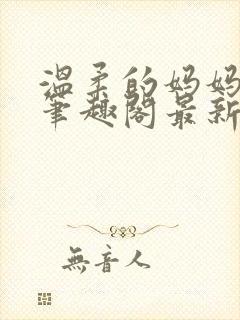 温柔的妈妈
筆趣閣最新
無音人